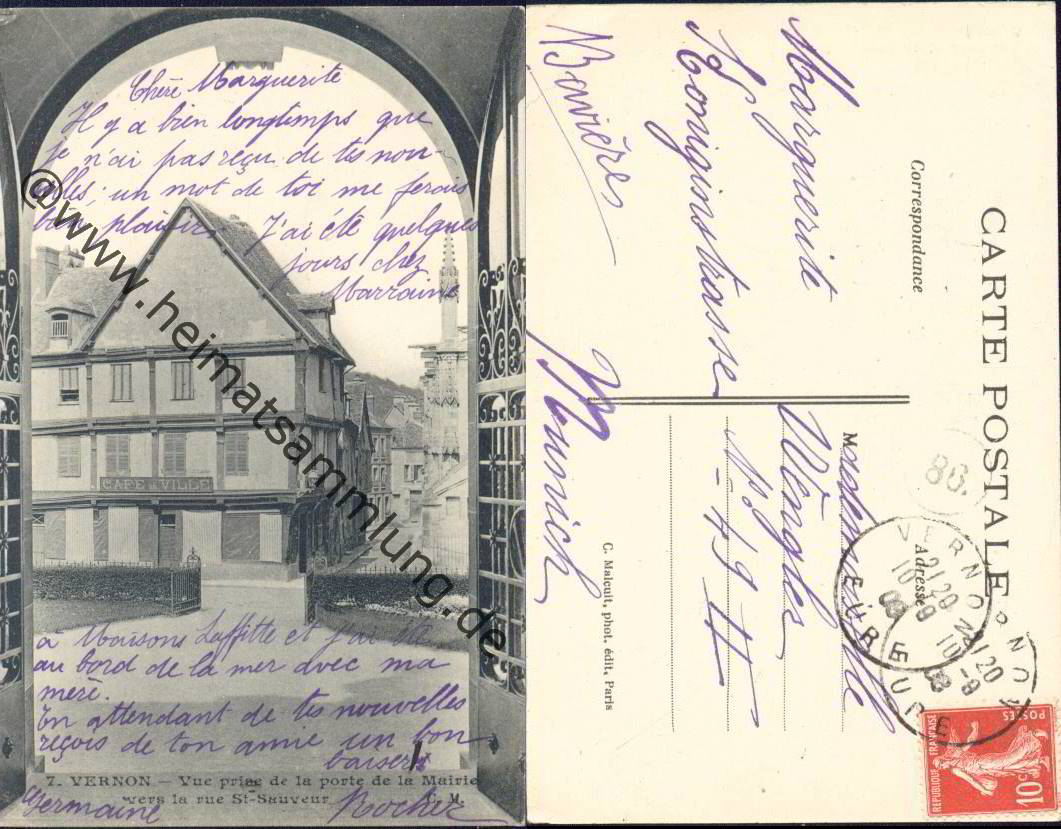 Chère Marguerite
Il y a bien longtemps que
je n'ai pas reçu de tes nou-
velles; un mot de toi me ferais
bien plaisir. J'ai été quelques
jours chez
Marraine
CAFÉ DE VILLE
à Maisons Laffitte et j'ai été
au bord de la mer avec ma
mère.
En attendant de tes nouvelles
reçois de ton amie un bon
baiser
7. VERNON — Vue prise de la porte de la Mairie
vers la rue St-Sauveur
C. M.
Germaine Rocher
@www.heimatsammlung.de
CARTE POSTALE
Correspondance
Adresse
Mademoiselle
Marguerite
Königinstrasse
No. 49 II
Munich
Bavière
C. Malcuit, phot. édit, Paris
86.
VERNON
21 20
10-9
08
EURE
VERNON
21 20
10-9
08
EURE
RÉPUBLIQUE FRANÇAISE
POSTES
10c